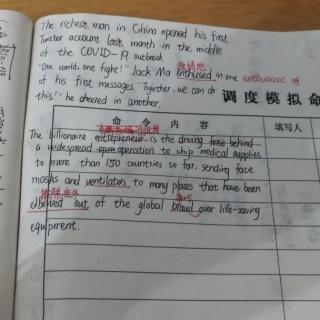 The richest man in China opened his first
Twitter account last month in the middle
of the COVID-19 outbreak.
"One world, one fight!" Jack Ma enthused in one enthusiastic
of his first messages. "Together, we can do
this!" he cheered in another.
调度模拟命
命 令 内 容 填写人
The billionaire entrepreneur is the driving force behind
a widespread operation to ship medical supplies
to more than 150 countries so far, sending face
masks and ventilators to many places that have been
elbowed out of the global brawl over life-saving
equipment.